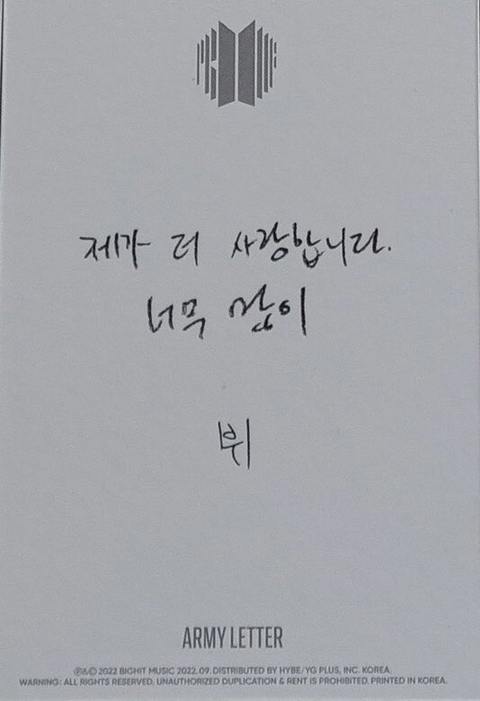 제가 더 사랑합니다.
너무 많이
뷔
ARMY LETTER
Ⓟ&© 2022 BIGHIT MUSIC 2022. 09. DISTRIBUTED BY HYBE/YG PLUS, INC. KOREA.
WARNING: ALL RIGHTS RESERVED. UNAUTHORIZED DUPLICATION & RENT IS PROHIBITED. PRINTED IN KOREA.